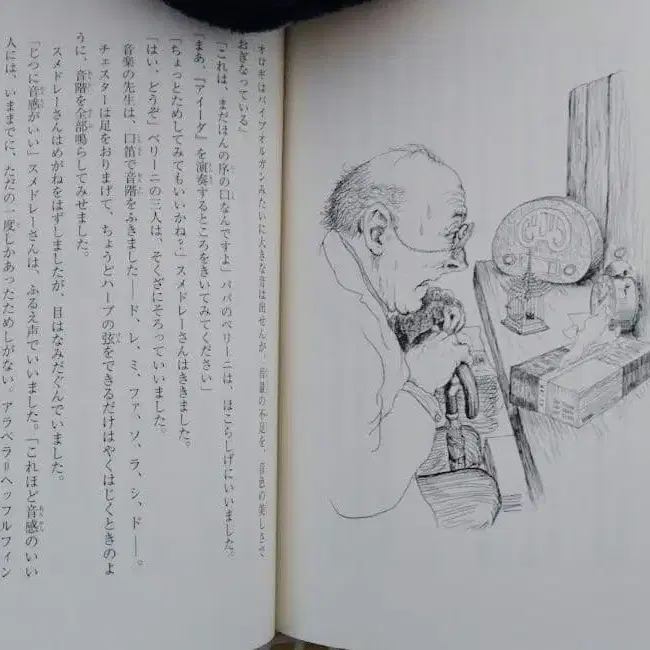 オロギはパイプオルガンみたいに大きな音は出せんが、音量の不足を、音色の美しさで
おぎなっている」
「これは、まだほんの序の口なんですよ」パパのベリーニは、ほこらしげにいいました。
「まあ、『アイーダ』を演奏するところをきいてみてください」
「ちょっとためしてみてもいいかね?」スメドレーさんはききました。
「はい、どうぞ」ベリーニの三人は、そくざにそろっていいました。
音楽の先生は、口笛で音階をふきました――ド、レ、ミ、ファ、ソ、ラ、シ、ド――。
チェスターは足をおりまげて、ちょうどハープの弦をできるだけはやくはじくときのよ
うに、音階を全部鳴らしてみせました。
スメドレーさんはめがねをはずしましたが、目はなみだぐんでいました。
「じつに音感がいい」スメドレーさんは、ふるえ声でいいました。「これほど音感のいい
人には、いままでに、ただの一度しかあったためしがない。アラベラ=ヘッフルフィン